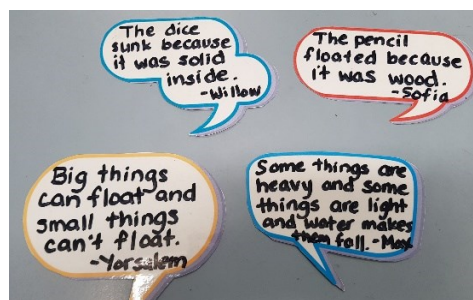 The dice
sunk because
it was solid
inside.
-Willow
The pencil
floated because
it was wood.
-Sofia
Big things
can float and
small things
can't float.
-Yorsalem
Some things are
heavy and some
things are light
and water makes
them fall.-Max